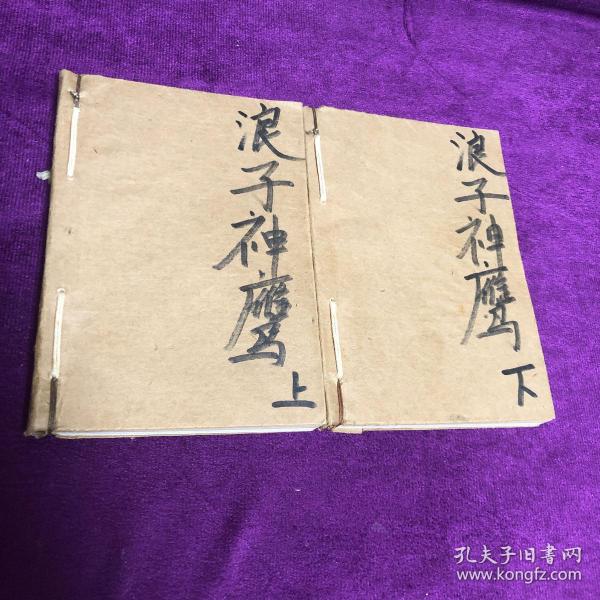 浪子神鹰
上
浪子神鹰
下
孔夫子旧书网
www.kongfz.com